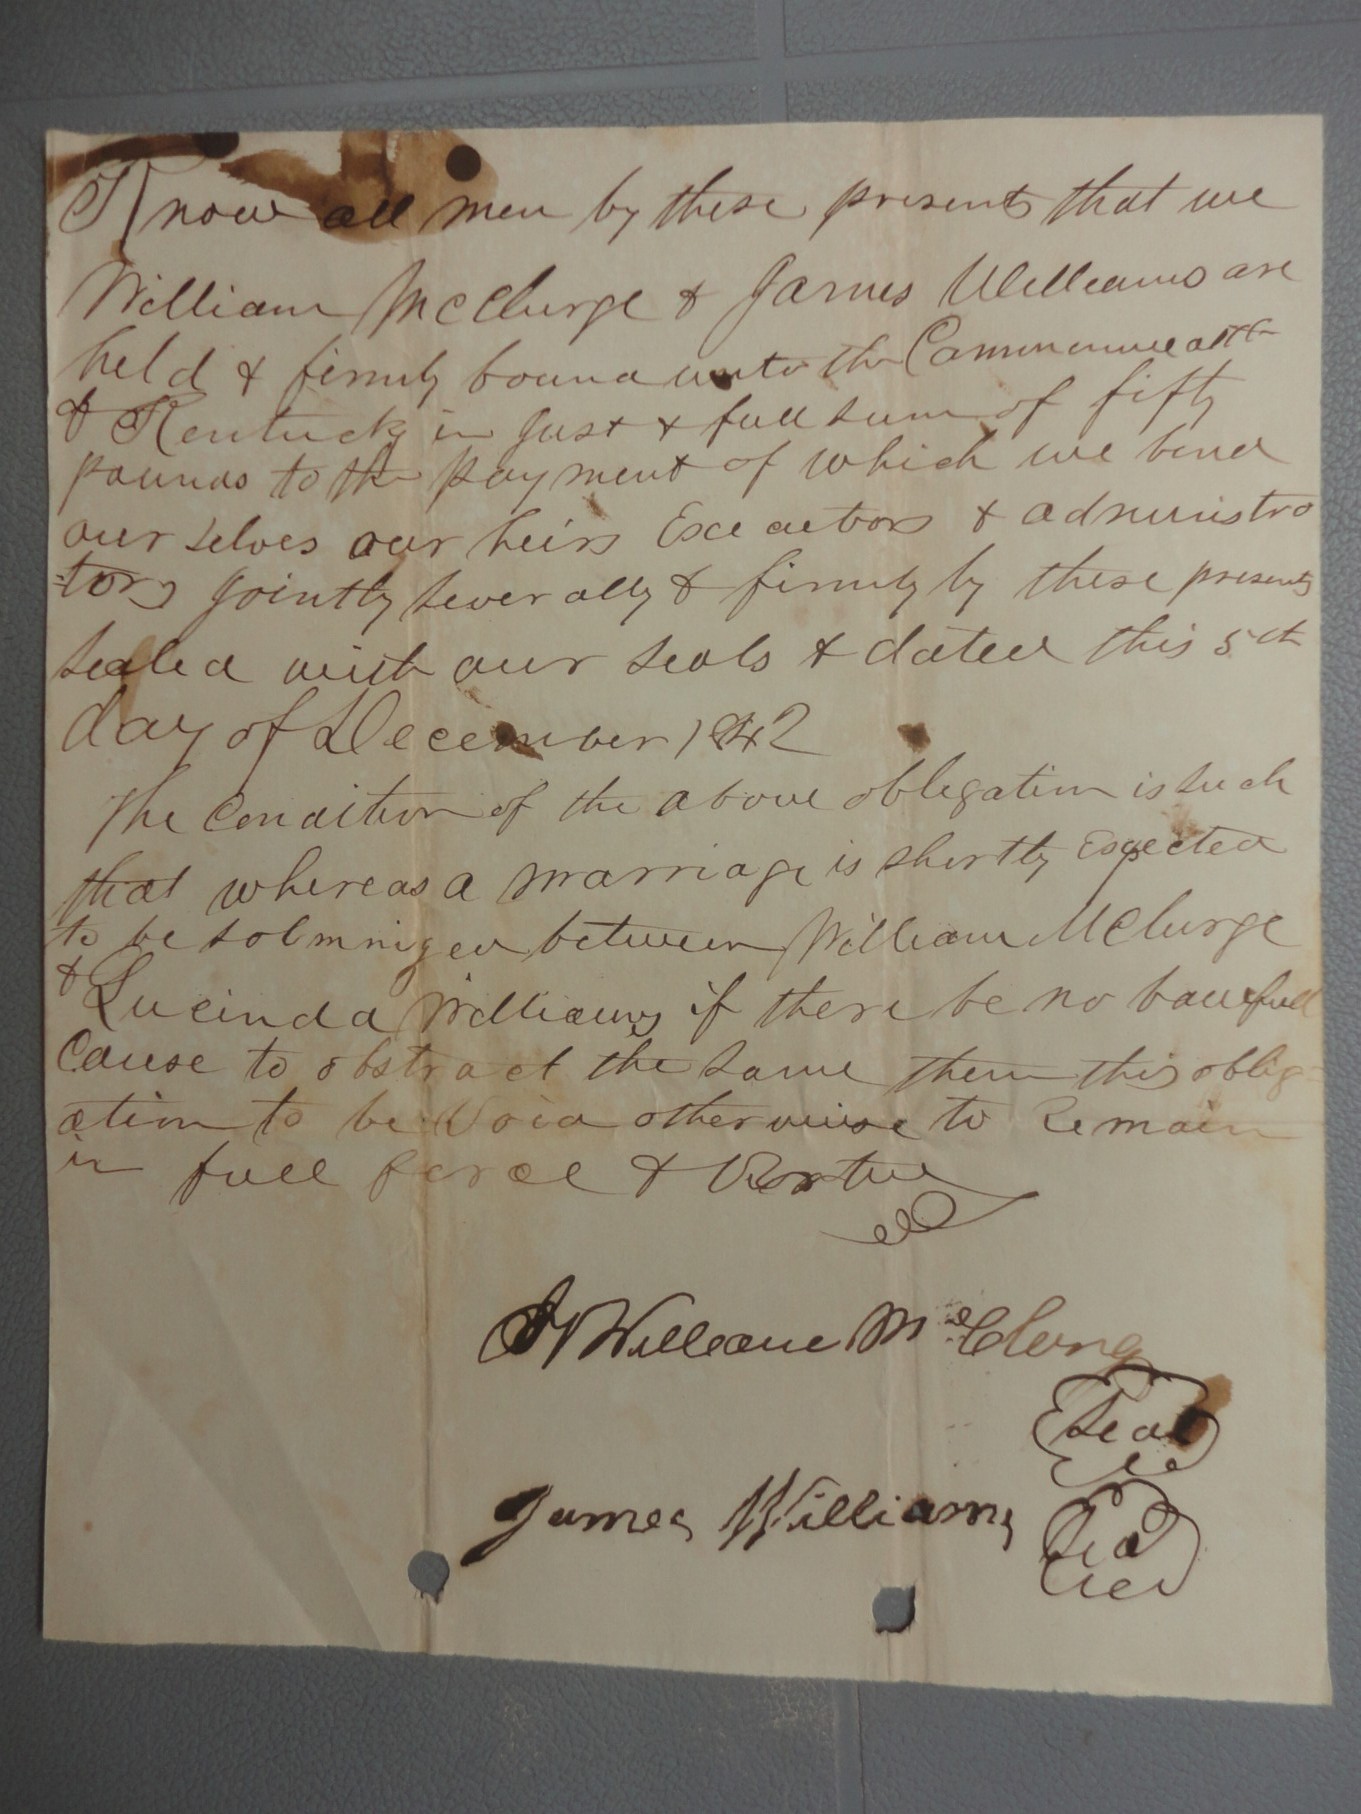 Know all men by these presents that we
William McClurge & James Williams are
held & firmly bound unto the Commonwealth
of Kentucky in Just & full sum of fifty
pounds to the payment of which we bind
our selves our heirs Executors & administra
=tors Jointly severally & firmly by these presents
sealed with our seals & dated this 5th
day of December 1842
The Condition of the above obligation is such
that whereas a marriage is shortly Expected
to be solmnized between William McClurge
& Lucinda Williams if there be no lawfull
Cause to obstract the same then this oblig=
ation to be Void otherwise to Remain
in full force & Vertue
William McClong
Seal
James Williams
Seal